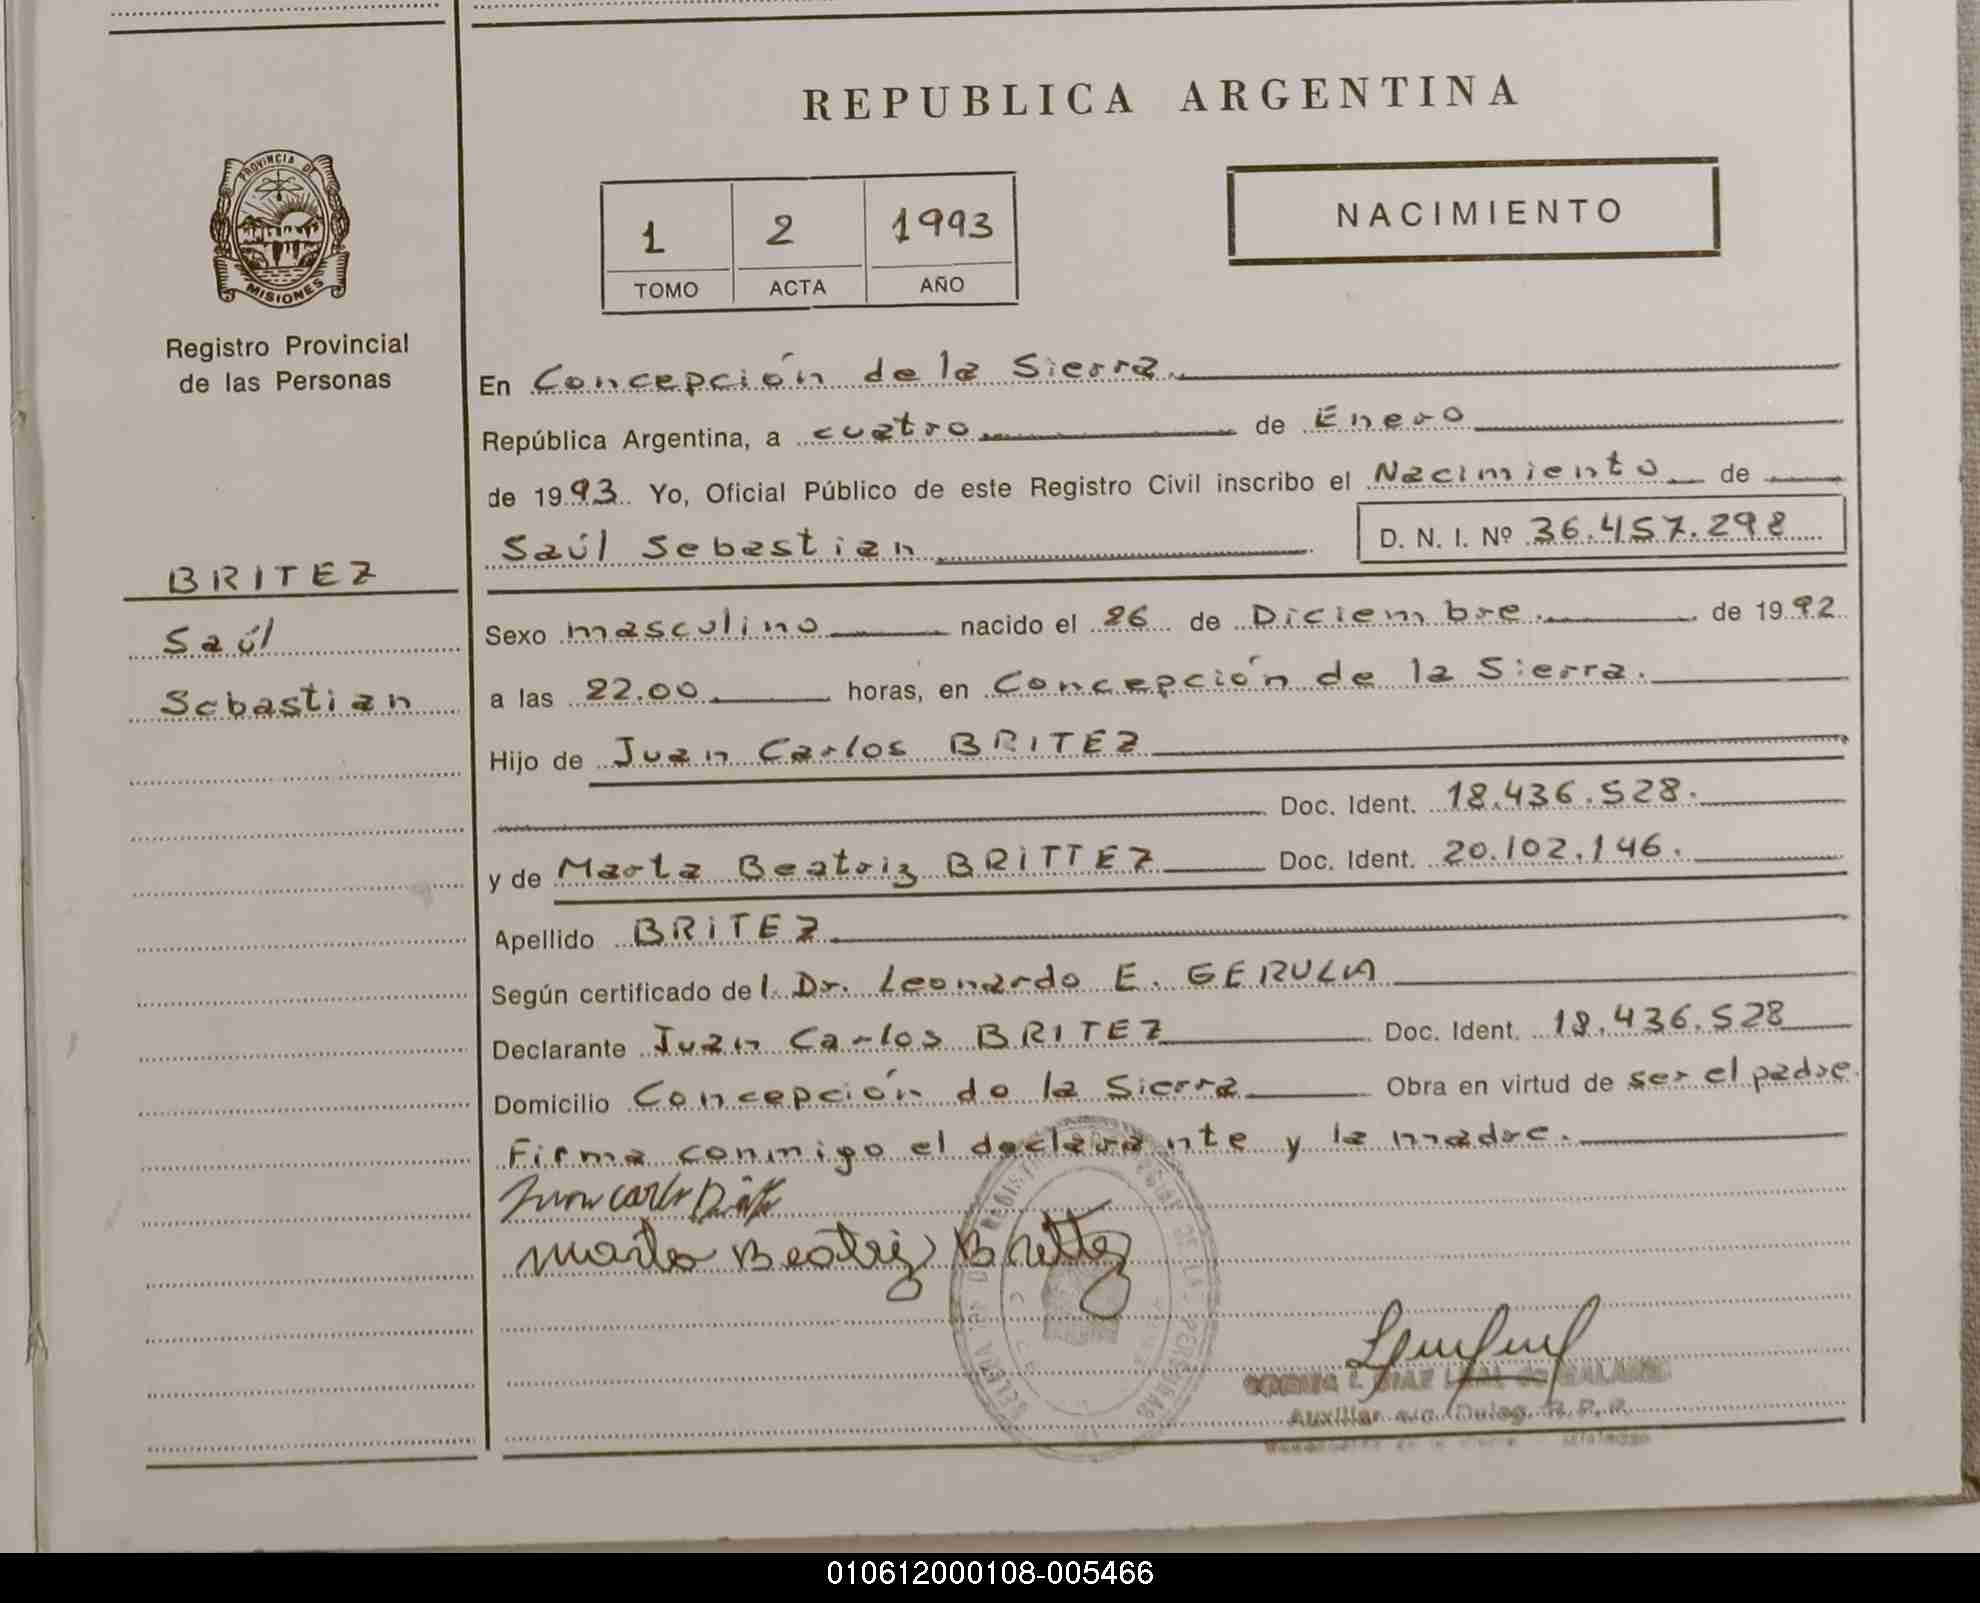 REPUBLICA ARGENTINA
PROVINCIA DE
MISIONES
Registro Provincial
de las Personas
1 2 1993
TOMO ACTA AÑO
NACIMIENTO
En Concepción de la Sierra.
República Argentina, a cuatro de Enero
de 1993. Yo, Oficial Público de este Registro Civil inscribo el Nacimiento de
Saúl Sebastian D. N. I. Nº 36.457.298
BRITEZ
Saúl
Sebastian
Sexo masculino nacido el 26 de Diciembre. de 1992
a las 22.00 horas, en Concepción de la Sierra.
Hijo de Juan Carlos BRITEZ
Doc. Ident. 18.436.528.
y de Marta Beatriz BRITTEZ Doc. Ident. 20.102.146.
Apellido BRITEZ
Según certificado del Dr. Leonardo E. GERULA
Declarante Juan Carlos BRITEZ Doc. Ident. 18.436.528
Domicilio Concepción de la Sierra Obra en virtud de ser el padre.
Firma conmigo el declarante y la madre.
Juan Carlos
Marta Beatriz Brittez
DIAZ de
Auxiliar a/c. Deleg. R. P. P.
010612000108-005466